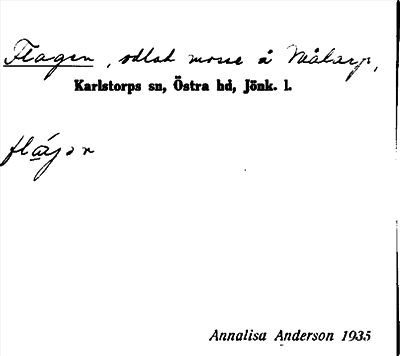 Flagen, odlad mosse å Målarp,
Karlstorps sn, Östra hd, Jönk. l.
flágən
Annalisa Anderson 1935